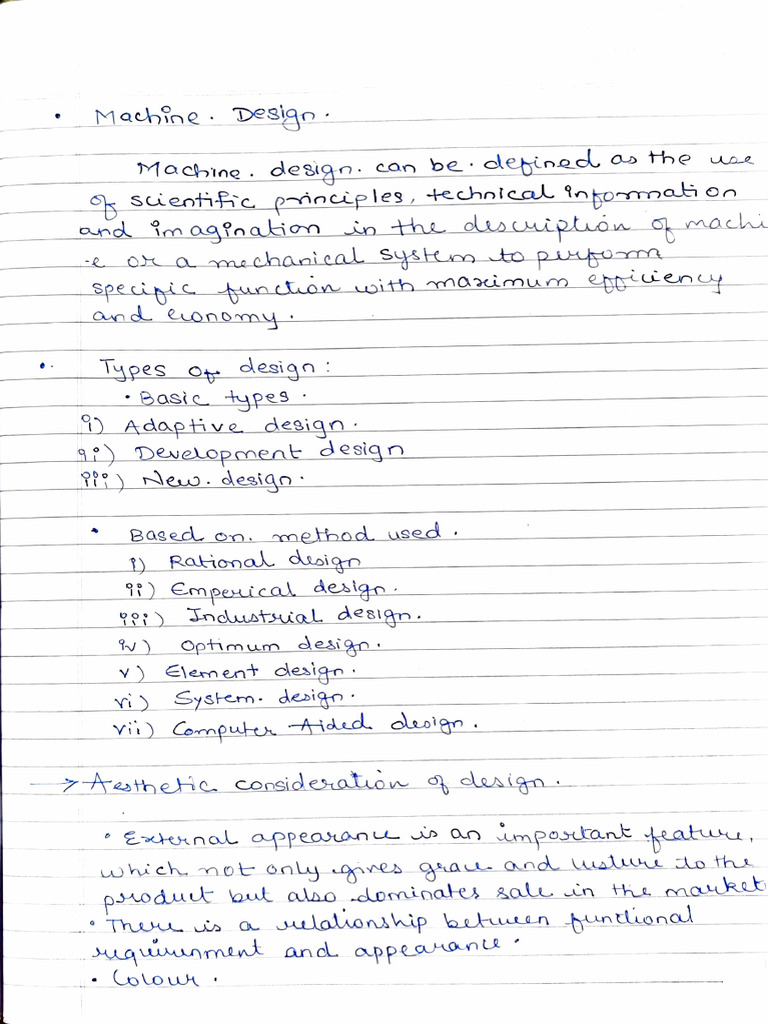 • Machine. Design.
Machine. design. can be. defined as the use
of scientific principles, technical information
and imagination in the description of machi
-e or a mechanical system to perform
specific function with maximum efficiency
and economy.
• Types of design:
• Basic types.
i) Adaptive design.
ii) Development design
iii) New. design.
• Based on. method used.
i) Rational design
ii) Emperical design.
iii) Industrial design.
iv) Optimum design.
v) Element design.
vi) System. design.
vii) Computer Aided design.
→ Aesthetic consideration of design.
• External appearance is an important feature,
which not only gives grace and lusture to the
product but also dominates sale in the market
• There is a relationship between functional
requirunment and appearance.
• Colour.